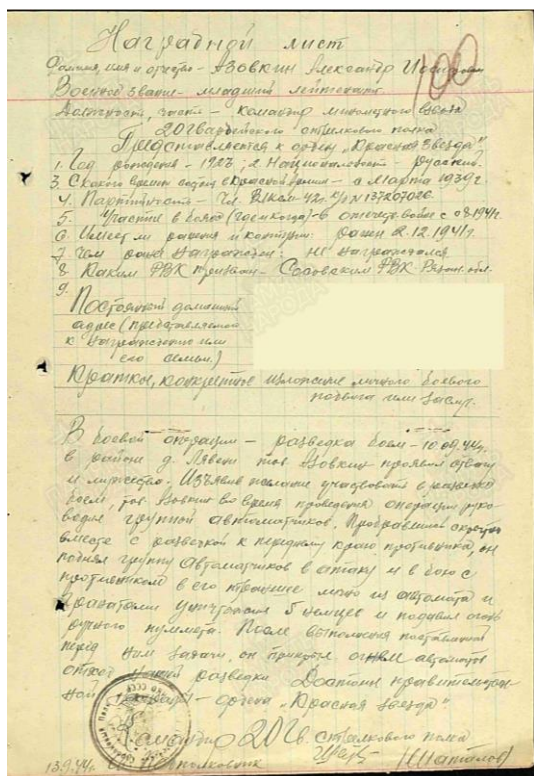 Наградной лист
100
Фамилия, имя и отчество - Азовкин Александр
Военное звание - младший лейтенант
Должность, часть - командир минометного взвода
20 гвардейского стрелкового полка
Представляется к ордену „Красная Звезда"
1. Год рождения - 1923; 2 Национальность - русский.
3. С какого времени в Красной Армии - с марта 1939г.
4. Партийность - Чл. ВЛКСМ-42г. №13720702
5. Участие в боях (где и когда) - в отечеств. войне с 08.1941г.
6. Имеет ли ранения и контузии: ранен 2.12.1941г.
7. Чем ранее награжден: не награждался
8. Каким РВК призван - Сосовским РВК Рязан. обл.
9.
Постоянный домашний
адрес (представляемого
к награждению или
его семьи.)
Краткое, конкретное изложение личного боевого
подвига или заслуг.
В боевой операции - разведка боем - 10.09.44г.
в районе д. тов. Азовкин проявил отвагу
и мужество. Изъявив желание участвовать в разведке
боем, тов. Азовкин во время проведения операции руко-
водил группой автоматчиков. Пробравшись скрытно
вместе с разведкой к переднему краю противника, он
поднял группу автоматчиков в атаку и в бою с
противником в его траншее лично из автомата и
гранатами уничтожил 5 немцев и подавил огонь
ручного пулемета. После выполнения поставленной
перед ним задачи, он прикрыл огнем автоматов
отход нашей разведки. Достоин правительствен-
ной награды - ордена „Красная Звезда"
Командир 20 Гв. стрелкового полка
Гв. подполковник (Шаталов)
13.9.44г.